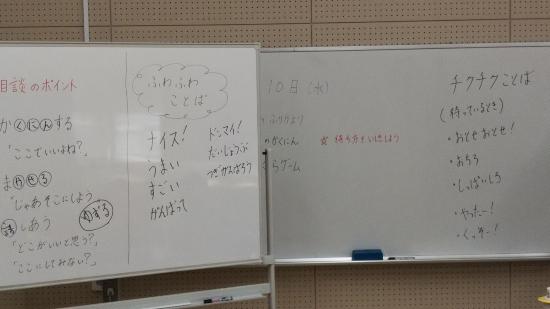 相談のポイント
かくにんする
「ここでいいよね?」
まかせる
「じゃあそこにしよう
話しあう
ゆずる
「どこがいいと思う?」
「ここにしてみない?」
ふわふわ
ことば
ナイス!
うまい
すごい
がんばって
ドンマイ!
だいじょうぶ
つぎがんばろう
10日(水)
ふりかえり
のかくにん
ゲーム
チクチクことば
(待っているとき)
・おとせおとせ!
・おちろ
・しっぱいしろ
・やったー!
・くっそー!